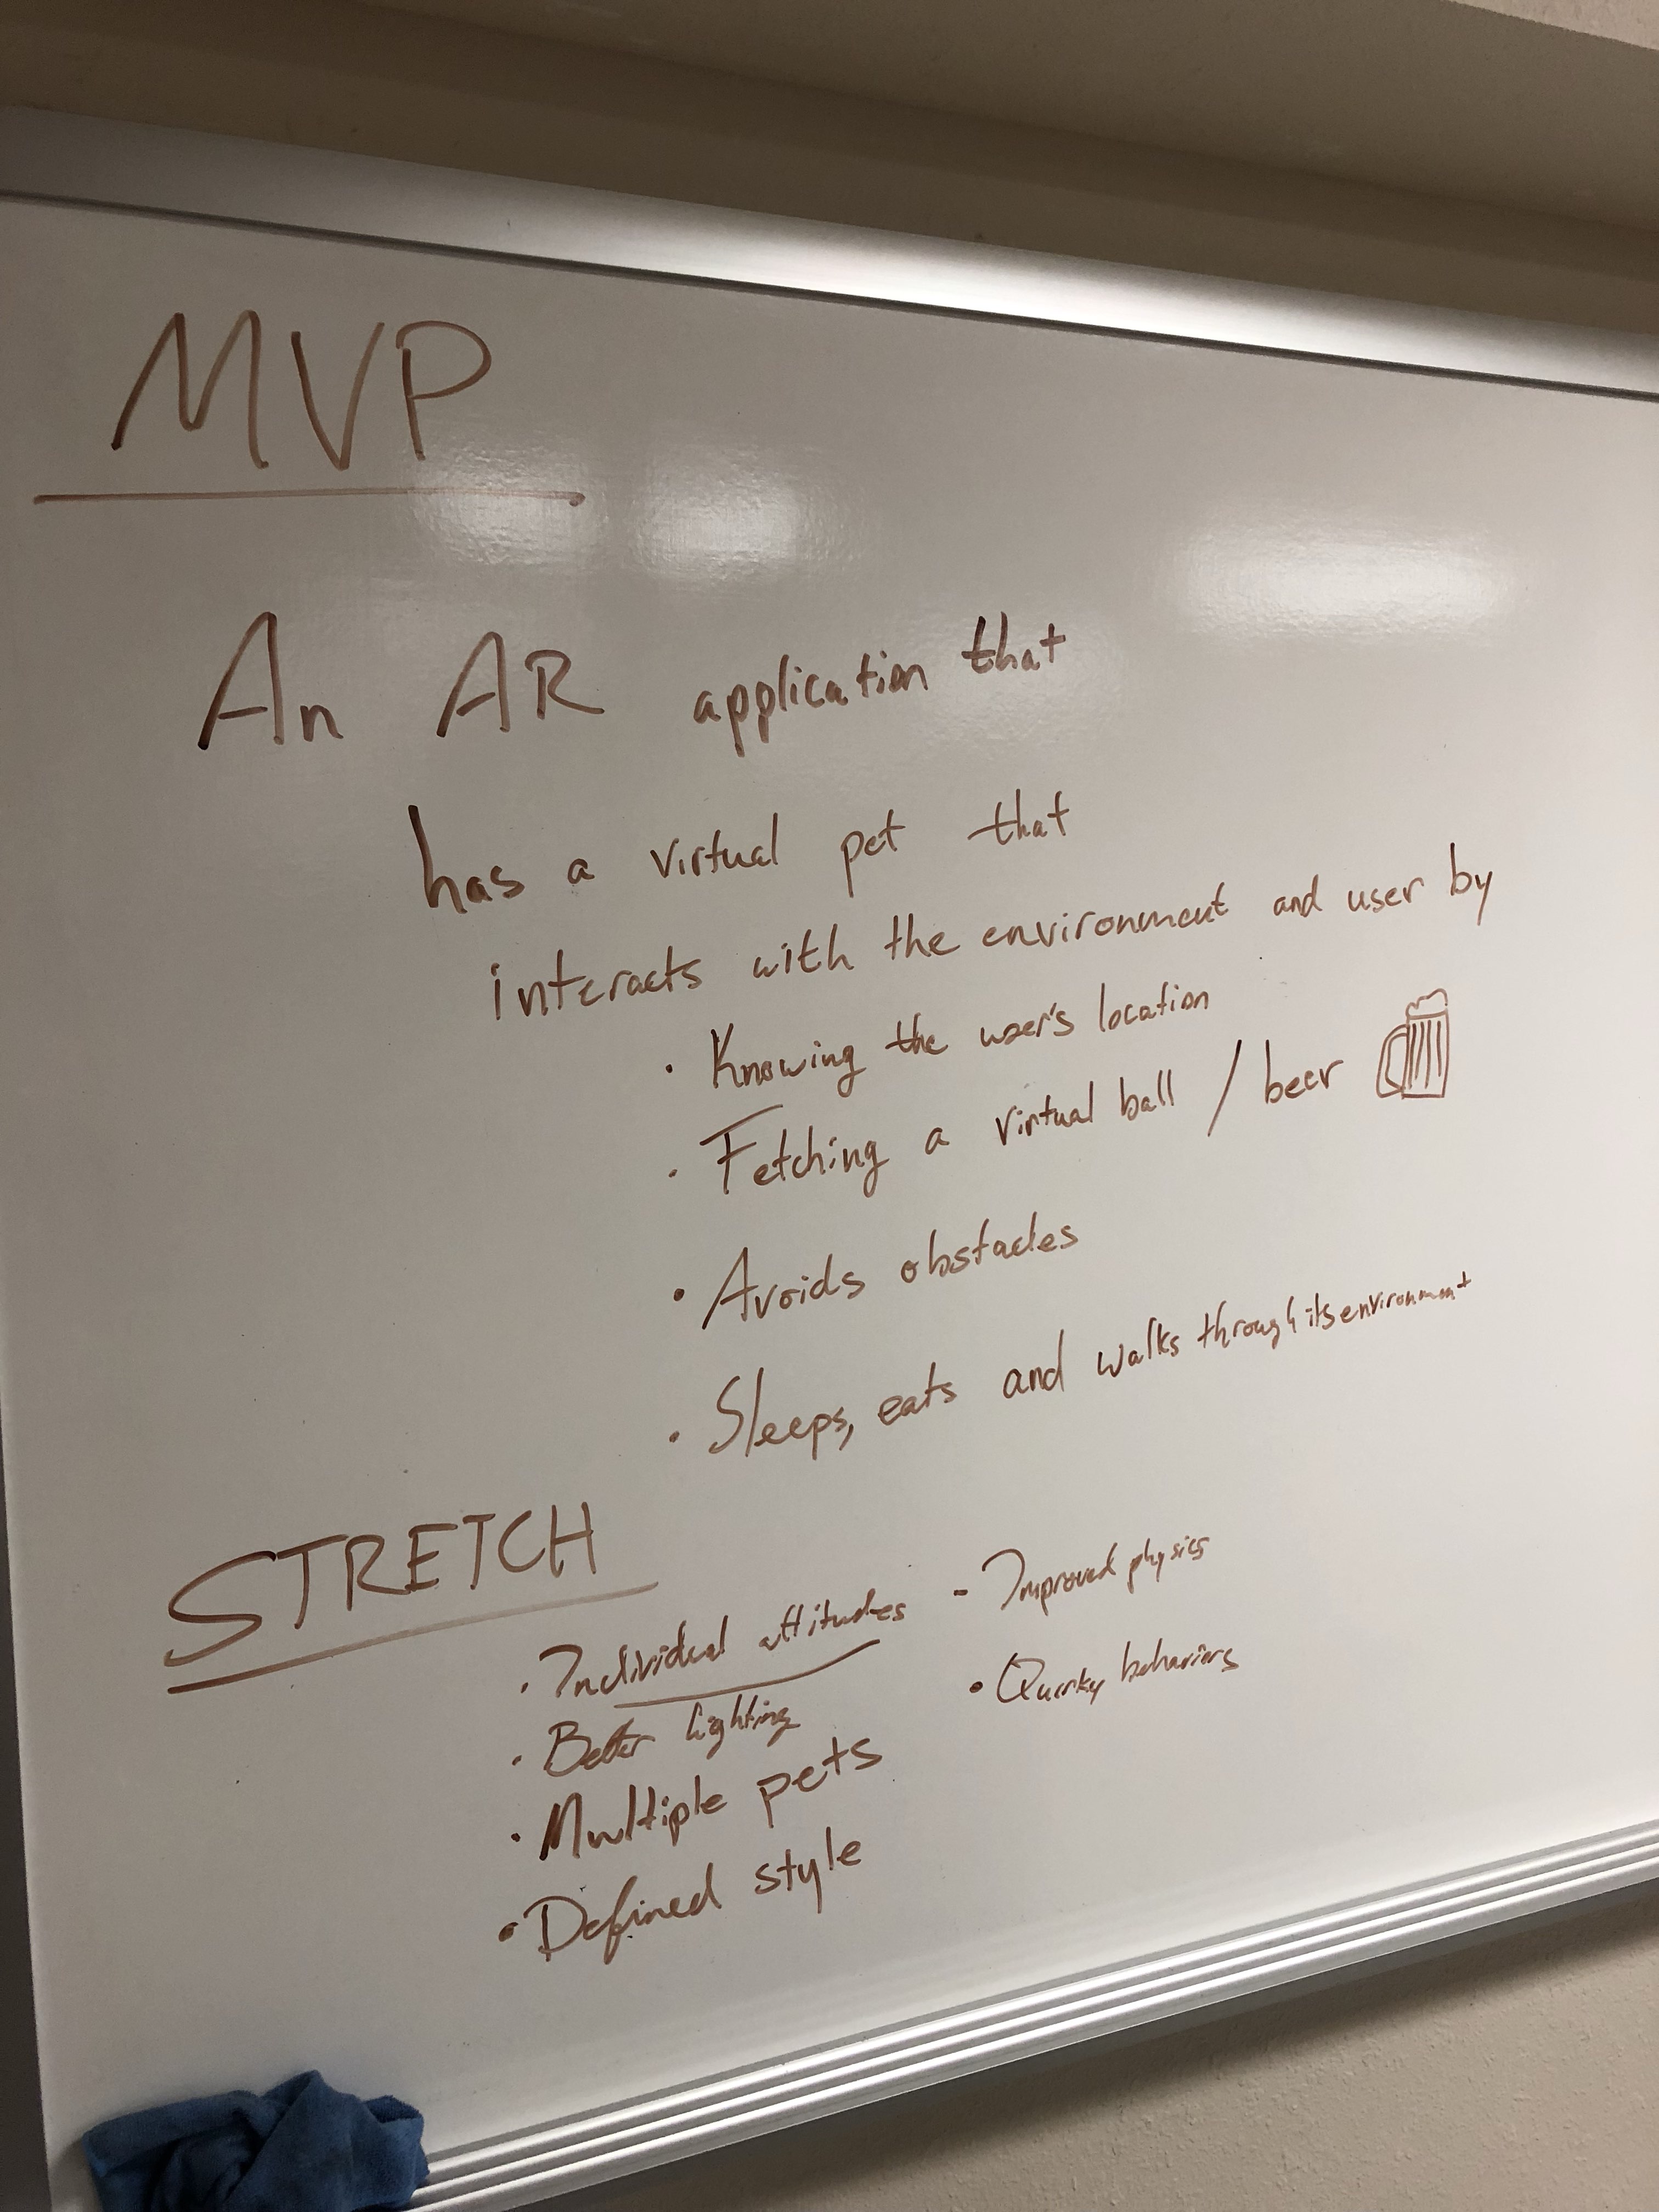 MVP
An AR application that
has a virtual pet that
interacts with the environment and user by
· Knowing the user's location
· Fetching a virtual ball / beer
· Avoids obstacles
· Sleeps, eats and walks through its environment
STRETCH
· Individual attitudes
· Better lighting
· Multiple pets
· Defined style
- Improved physics
· Quirky behaviors